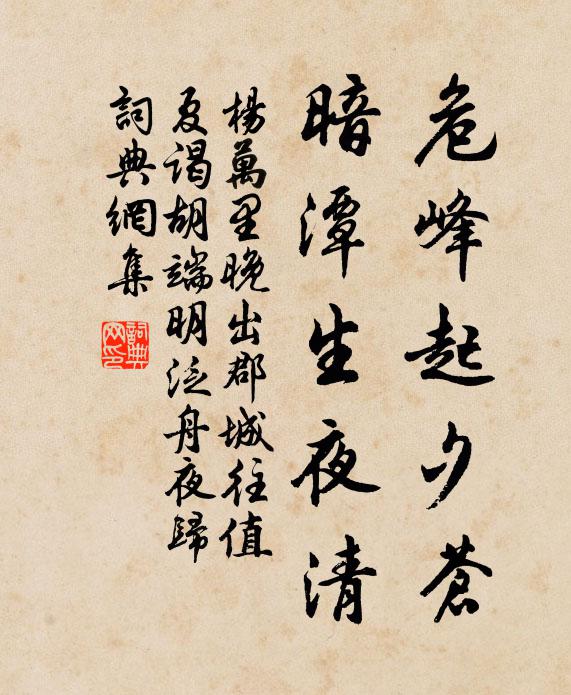 危峰起夕蒼
暗潭生夜清
楊萬里晚出郡城往值
夏谒胡端明泛舟夜歸
詞典網集
詞典
网印